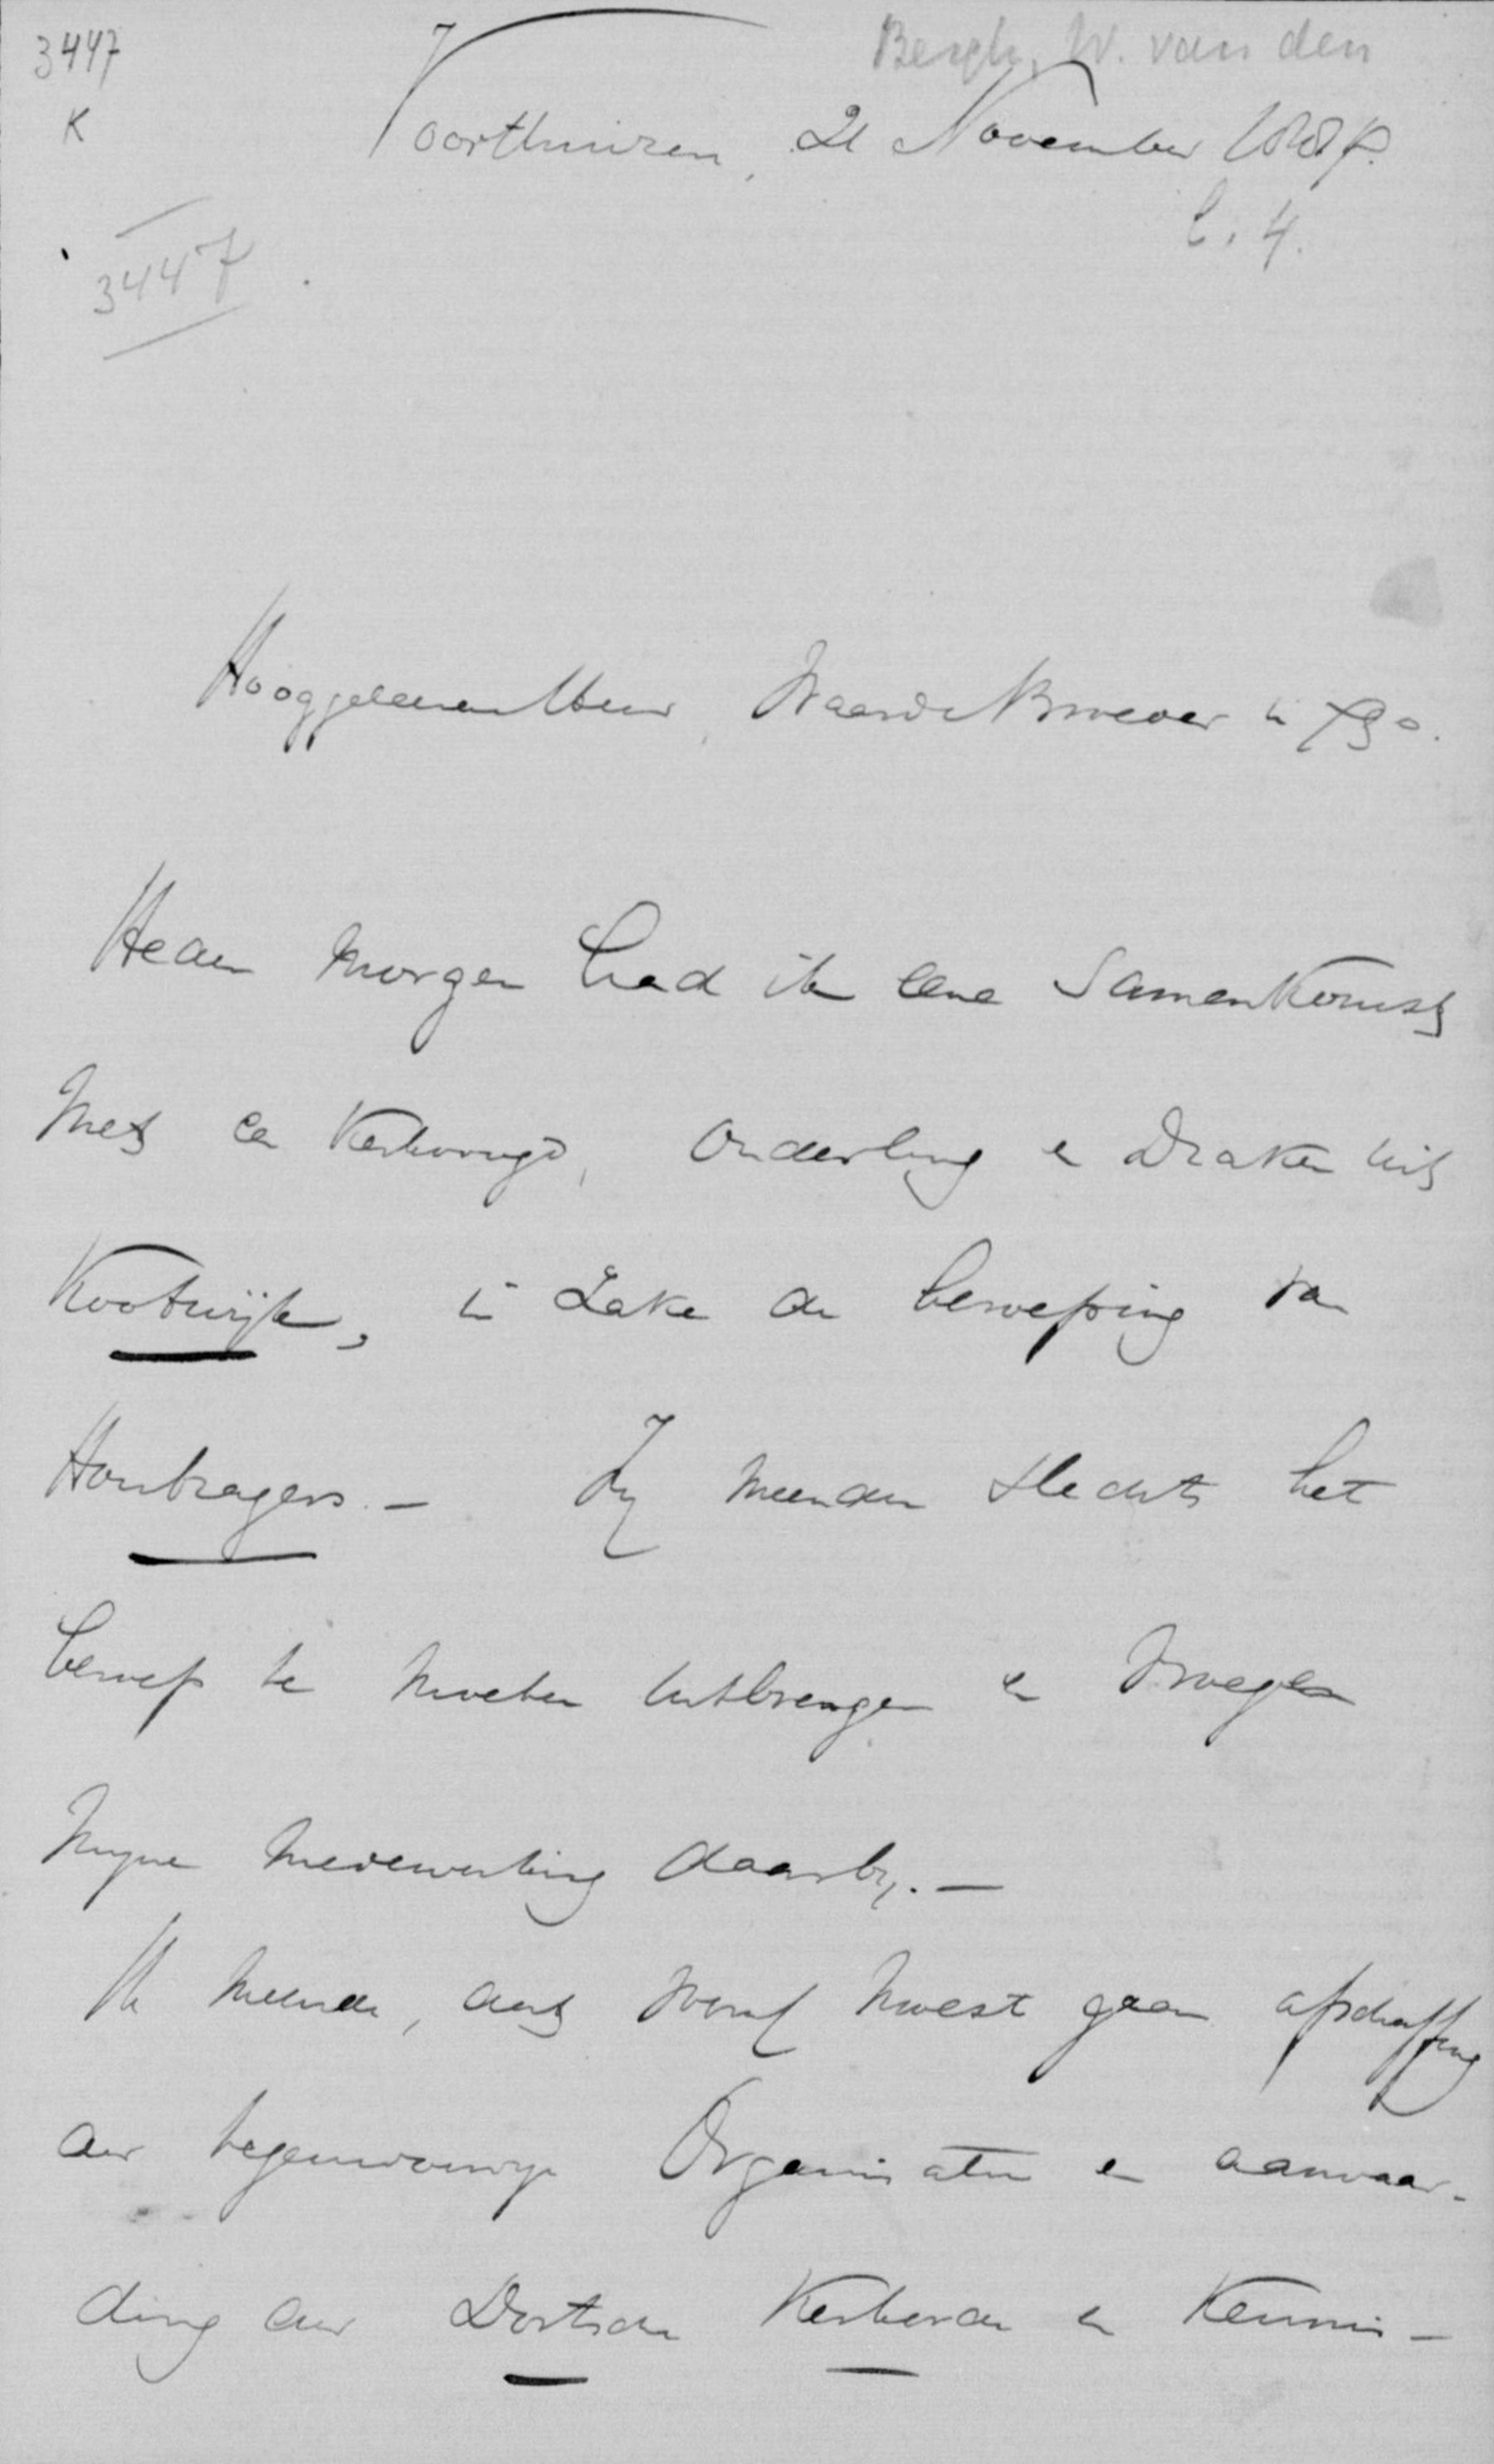 3447
Bergh, W. van den
K
Voorthuizen, 21 November 188
3447
Hooggeleerde Heer, Waarde Broeder in
Heden morgen had ik eene samenkomst
met en Kerkvoogd, Ouderling en Diaken uit
Kootwijk, in zake de beroeping van
Houtzagers. — Zij meenden slechts het
beroep te moeten uitbrengen en vroegen
mijne medewerking daarbij. —
Ik meende, dat vooraf moest gaan afschaffing
der tegenwoordige Organisatie en aanvaar-
ding der Dortsche Kerkorde en Kennis-